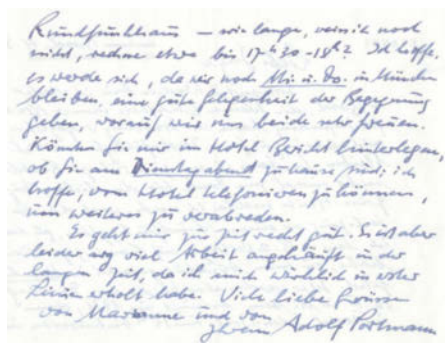 Rundfunkhaus – wie lange, weiss ich noch
nicht, rechne etwa bis 17h30 - 18h? Ich hoffe,
es werde sich, da wir noch Mi. u. Do. in München
bleiben, eine gute Gelegenheit der Begegnung
geben, worauf wir uns beide sehr freuen.
Könnten Sie mir im Hotel Bericht hinterlegen,
ob Sie am Dienstagabend zuhause sind; ich
hoffe, vom Hotel telefonieren zu können,
um weiteres zu verabreden.
Es geht mir zur Zeit recht gut. Es ist aber
leider viel Arbeit angehäuft in der
langen Zeit, da ich mich wirklich in erster
Linie erholt habe. Viele liebe Grüsse
von Marianne und von
Ihrem Adolf Portmann